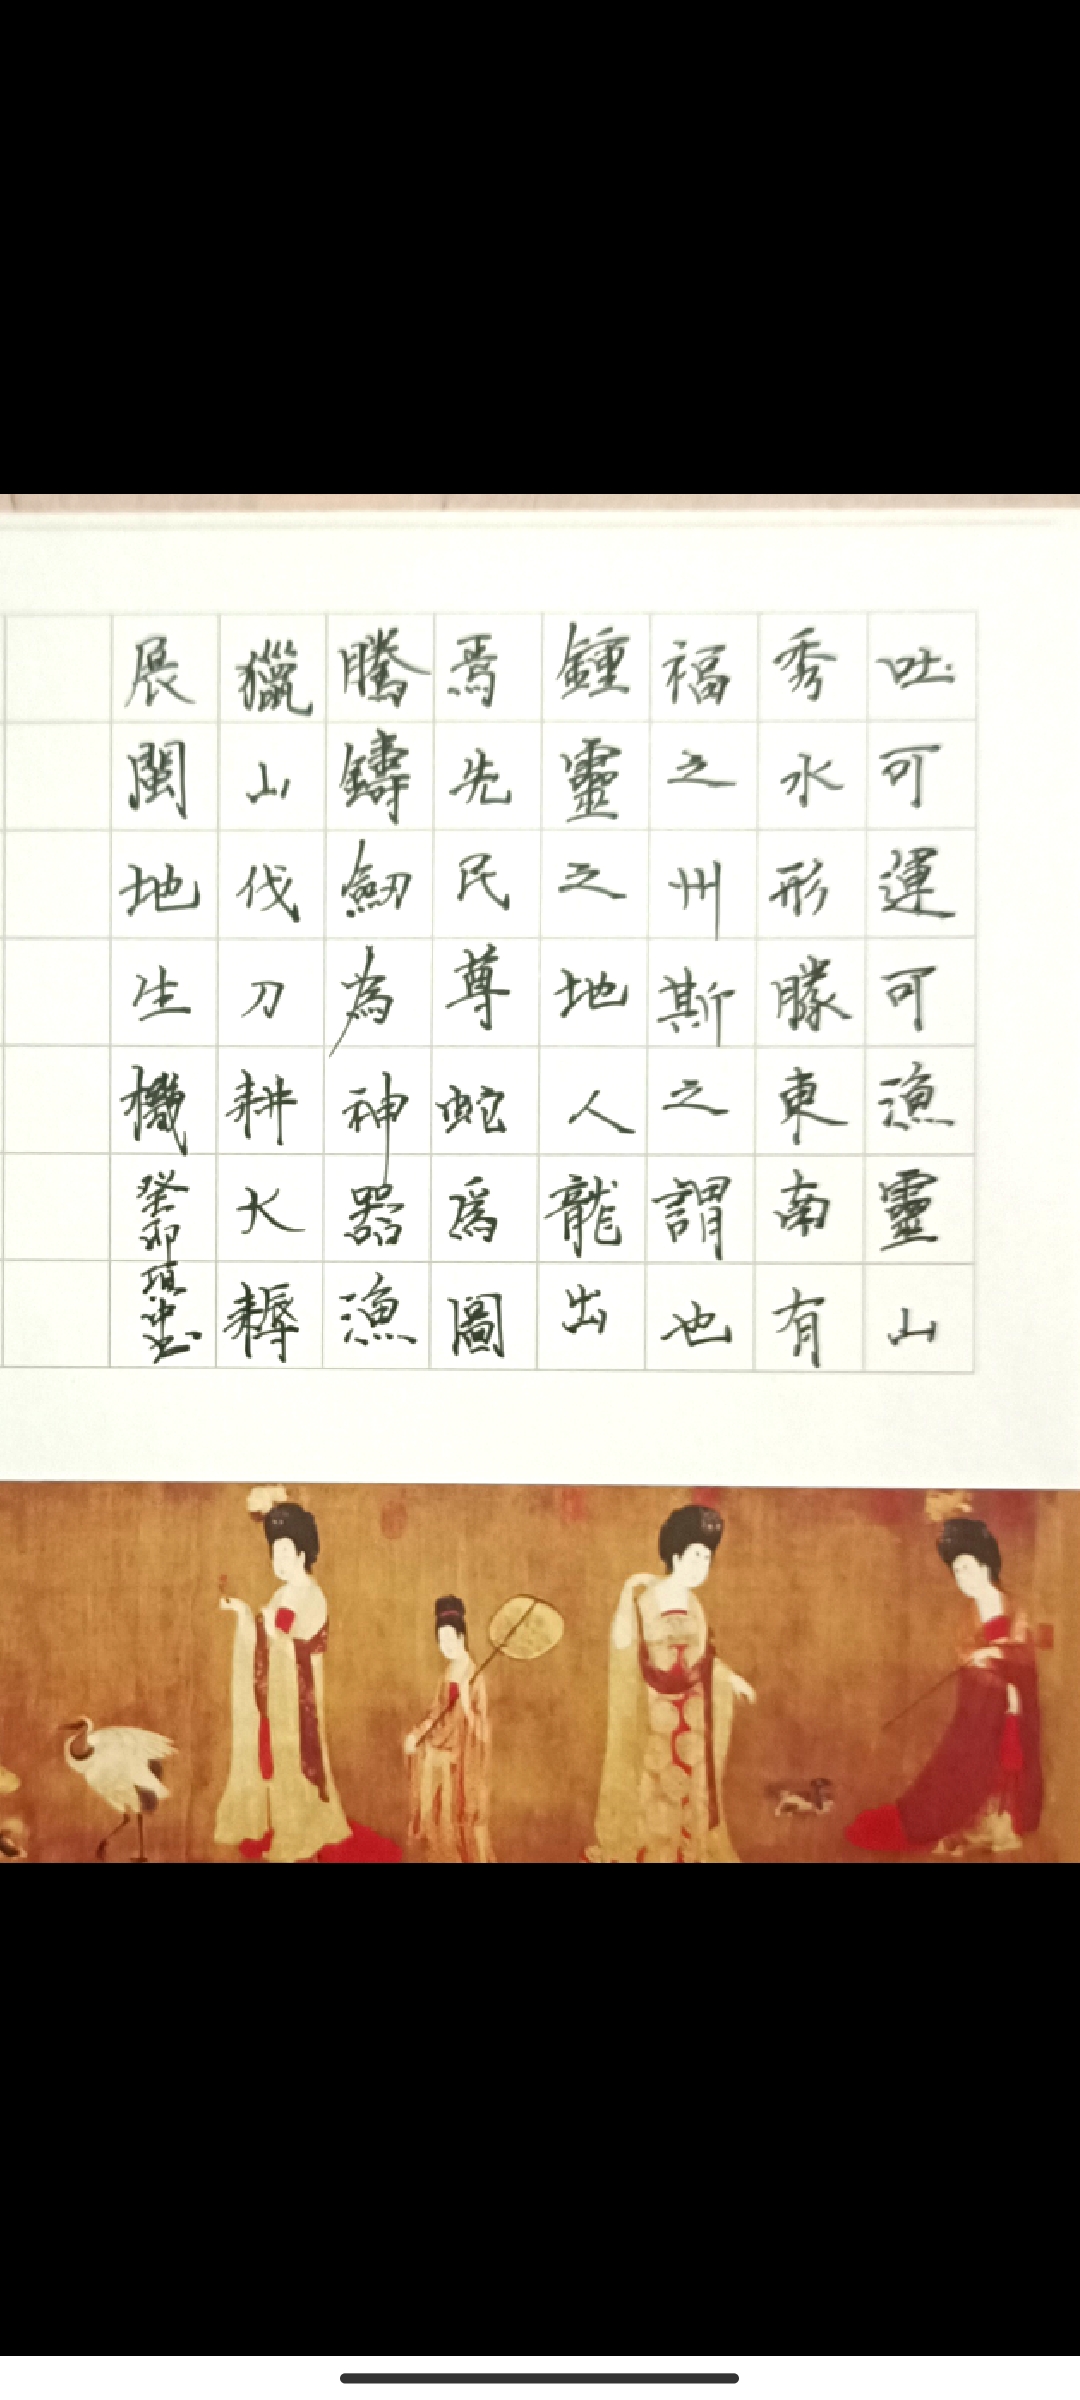 吐可運可漁靈山
秀水形勝東南有
福之州斯之謂也
鍾靈之地人龍出
焉先民尊蛇爲圖
騰鑄劔為神器漁
獵山伐刀耕火耨
展閩地生機癸卯